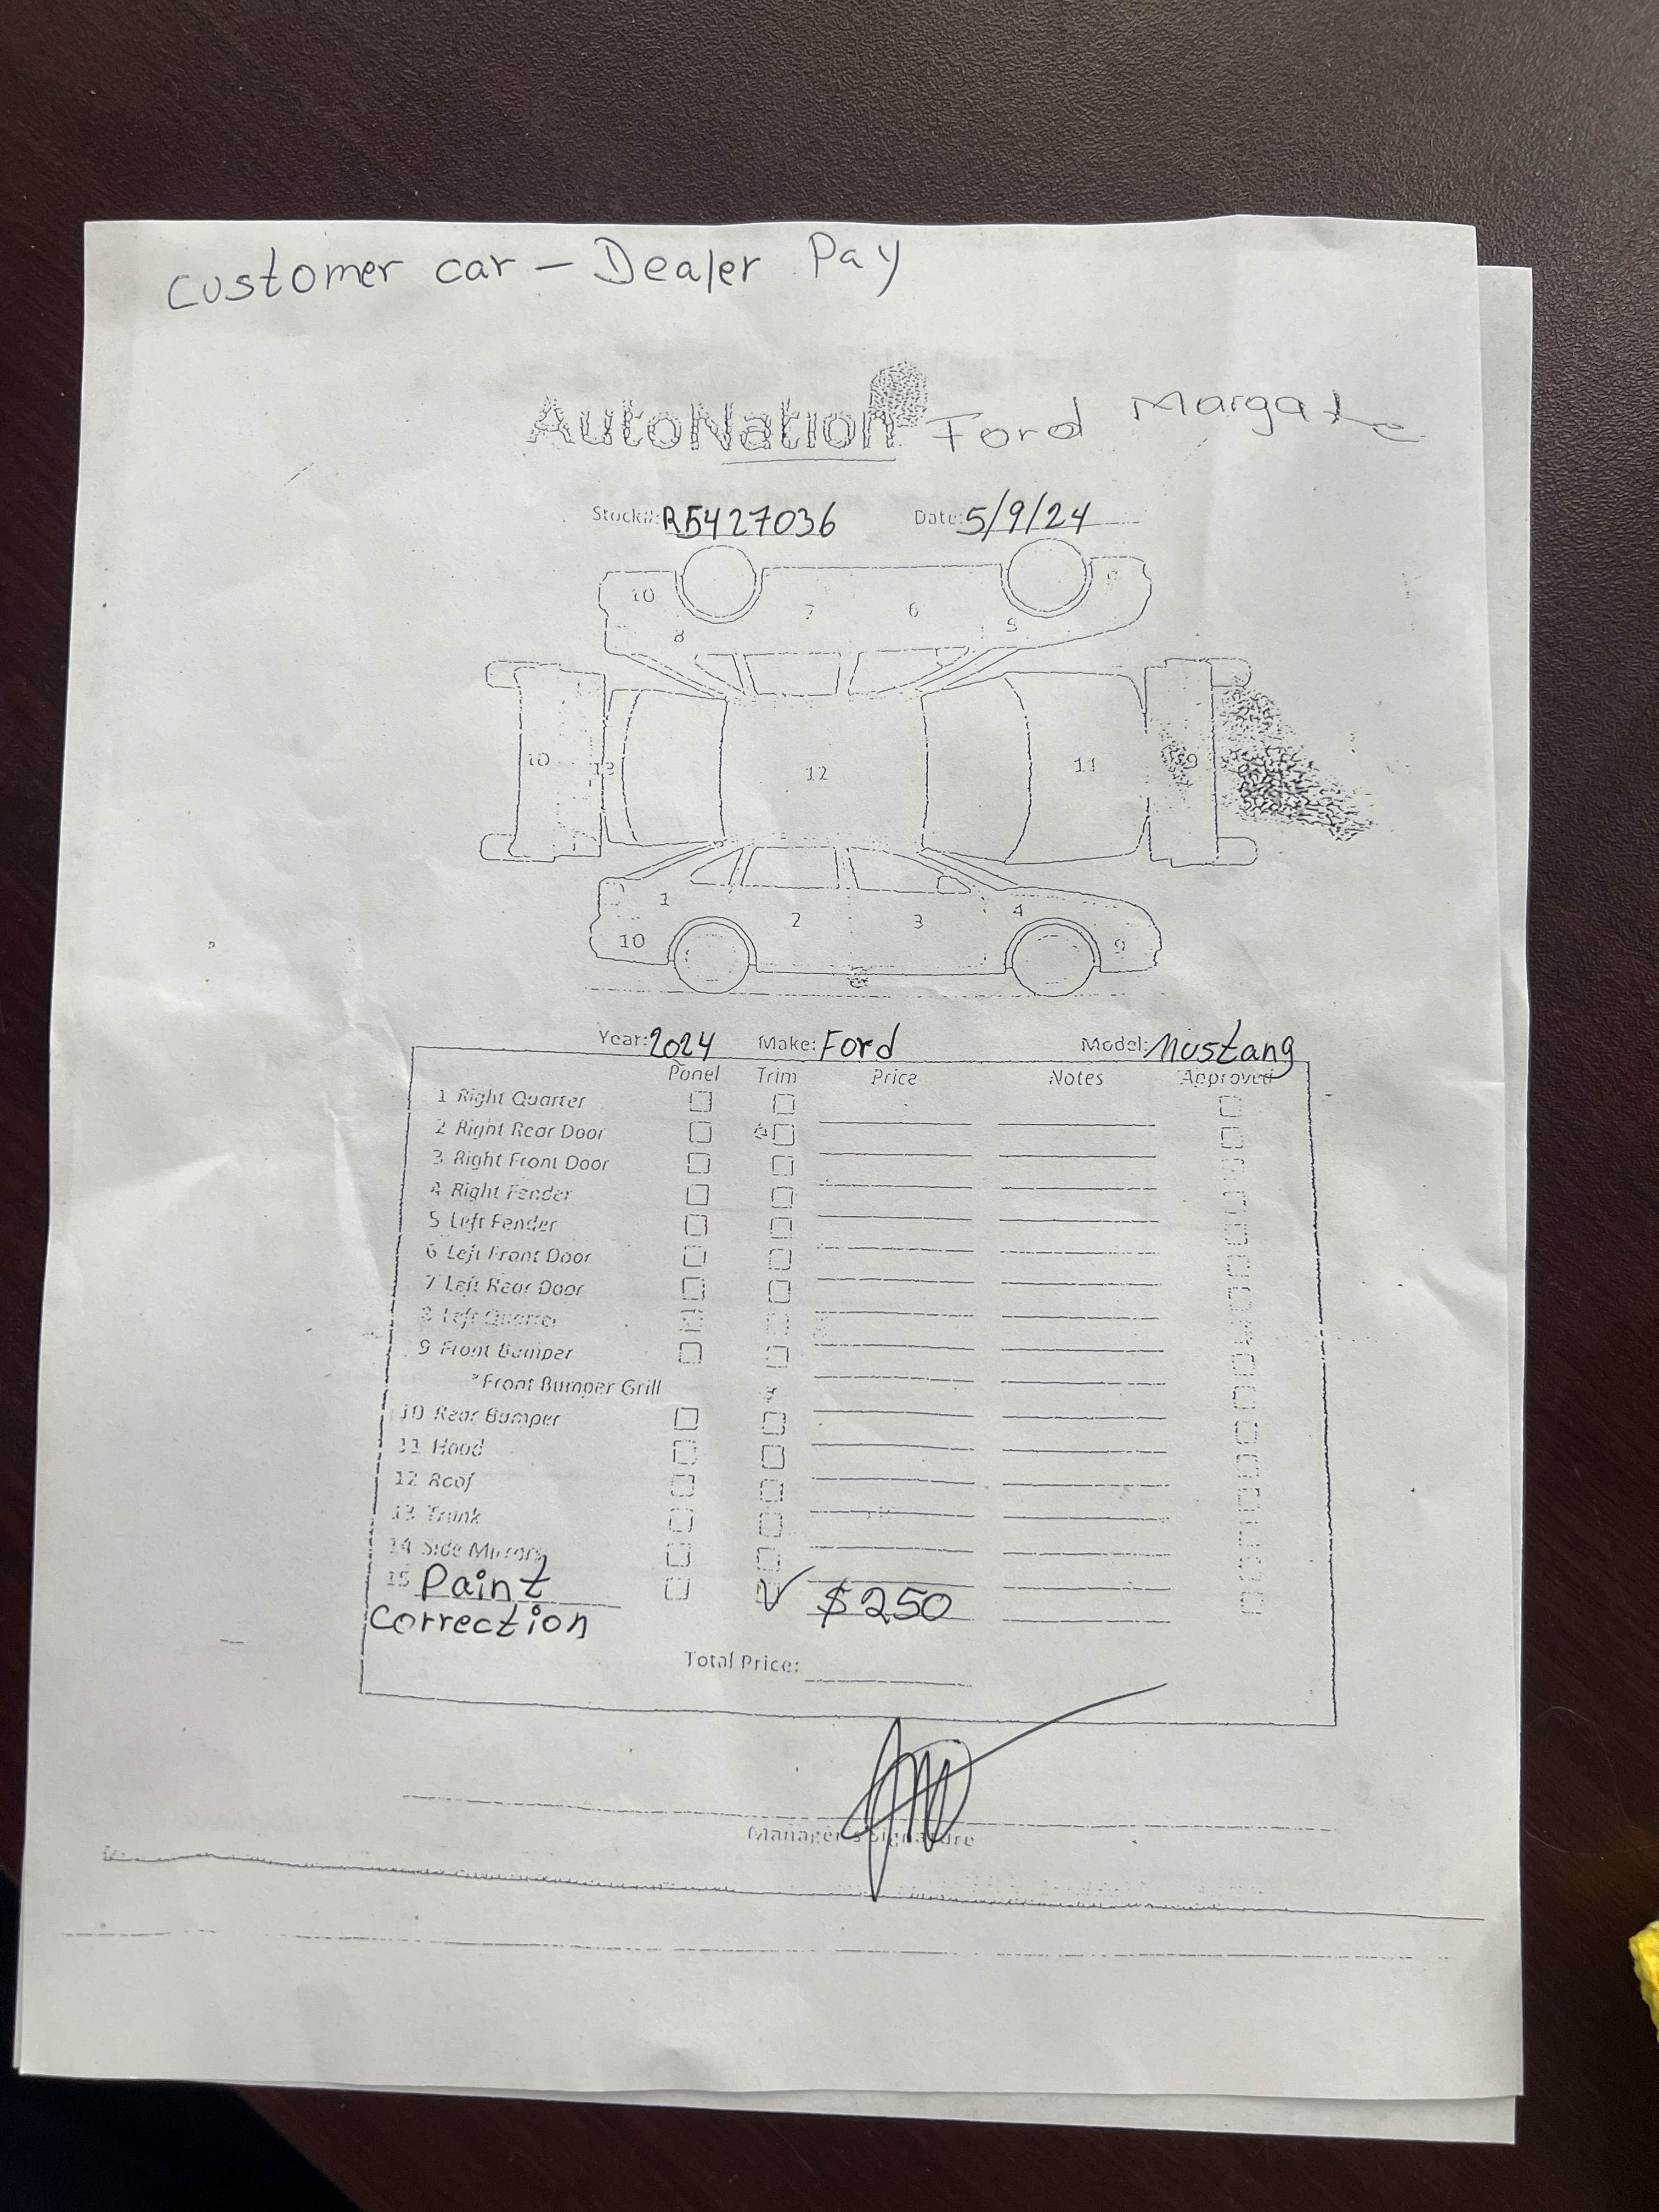 Customer car - Dealer Pay
AutoNation Ford Margate
Stock#: R5427036 Date: 5/9/24
10 7 6
8 5
10 12 11 9
1 2 3 4
10 9
Year: 2024 Make: Ford Model: Mustang
Panel Trim Price Notes Approved
1 Right Quarter
2 Right Rear Door
3 Right Front Door
4 Right Fender
5 Left Fender
6 Left Front Door
7 Left Rear Door
8 Left Quarter
9 Front Bumper
*Front Bumper Grill
10 Rear Bumper
11 Hood
12 Roof
13 Trunk
14 Side Mirrors
15 Paint ✓ $250
Correction
Total Price:
Manager's Signature